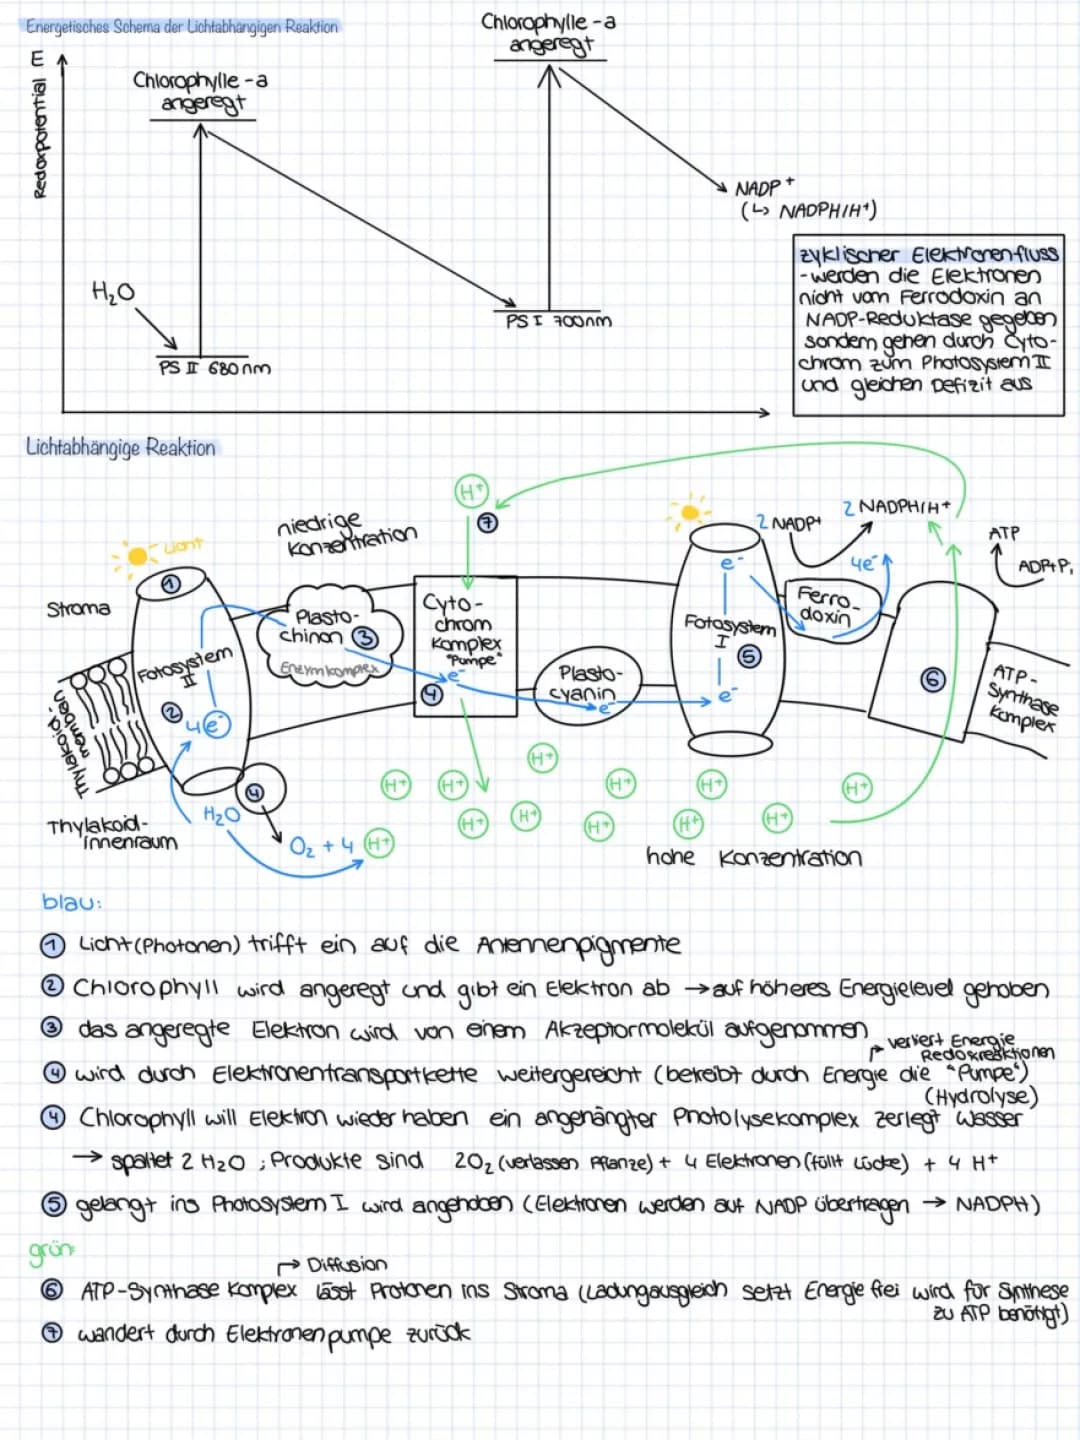 Energetisches Schema der Lichtabhängigen Reaktion
E
Redoxpotential
Chlorophylle -a
angeregt
Chlorophylle -a
angeregt
NADP +
(↳ NADPH/H+)
H₂O
PS II 680nm
PS I 700nm
zyklischer Elektronenfluss
-werden die Elektronen
nicht vom Ferrodoxin an
NADP-Reduktase gegeben
sondern gehen durch Cyto-
chrom zum Photosystem II
und gleichen Defizit aus
Lichtabhängige Reaktion
H+
7
niedrige
Konzentration
Licht
Stroma
1
Fotosystem
II
2
4e-
Thylakoid
membran
Thylakoid-
innenraum
H₂O
4
O₂ + 4 H+
Plasto-
chinon 3
Enzymkomplex
Cyto-
chrom
Komplex
"Pumpe"
e-
4
Plasto-
cyanin
e-
2 NADP+
2 NADPH/H+
e-
4e-
Fotosystem
I
5
e-
Ferro-
doxin
6
ATP
ADP+Pi
ATP-
Synthase
Komplex
H+
H+
H+
H+
H+
H+
H+
H+
H+
H+
H+
hohe Konzentration
blau:
1 Licht (Photonen) trifft ein auf die Antennenpigmente
2 Chlorophyll wird angeregt und gibt ein Elektron ab → auf höheres Energielevel gehoben
3 das angeregte Elektron wird von einem Akzeptormolekül aufgenommen
verliert Energie
Redoxreaktionen
4 wird durch Elektronentransportkette weitergereicht (betreibt durch Energie die "Pumpe")
(Hydrolyse)
4 Chlorophyll will Elektron wieder haben ein angehängter Photolysekomplex zerlegt Wasser
→ spaltet 2 H₂O ; Produkte sind 2O₂ (verlassen Pflanze) + 4 Elektronen (füllt Lücke) + 4 H+
5 gelangt ins Photosystem I wird angehoben (Elektronen werden auf NADP übertragen → NADPH)
grün:
→ Diffusion
6 ATP-Synthase Komplex lässt Protonen ins Stroma (Ladungausgleich setzt Energie frei wird für Synthese
zu ATP benötigt)
7 wandert durch Elektronenpumpe zurück